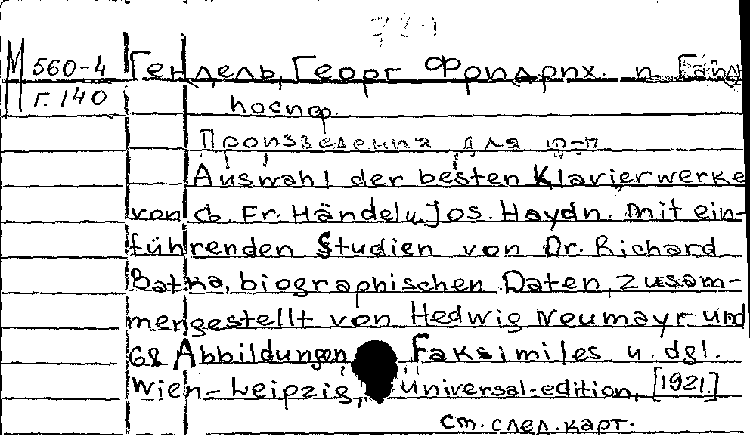 М 560-4
Г. 140
Гендель, Георг Фридрих. и Гайд
Иосиф.
Произведения для ф-п
Auswahl der besten Klavierwerke
von G. Fr. Händel u. Jos. Haydn. Mit ein-
führenden Studien von Dr. Richard
Batka, biographischen Daten, zusam-
mengestellt von Hedwig Neumayr und
68 Abbildungen, Faksimiles u. dgl.
Wien-Leipzig, Universal-edition, [1921]
см. след. карт.